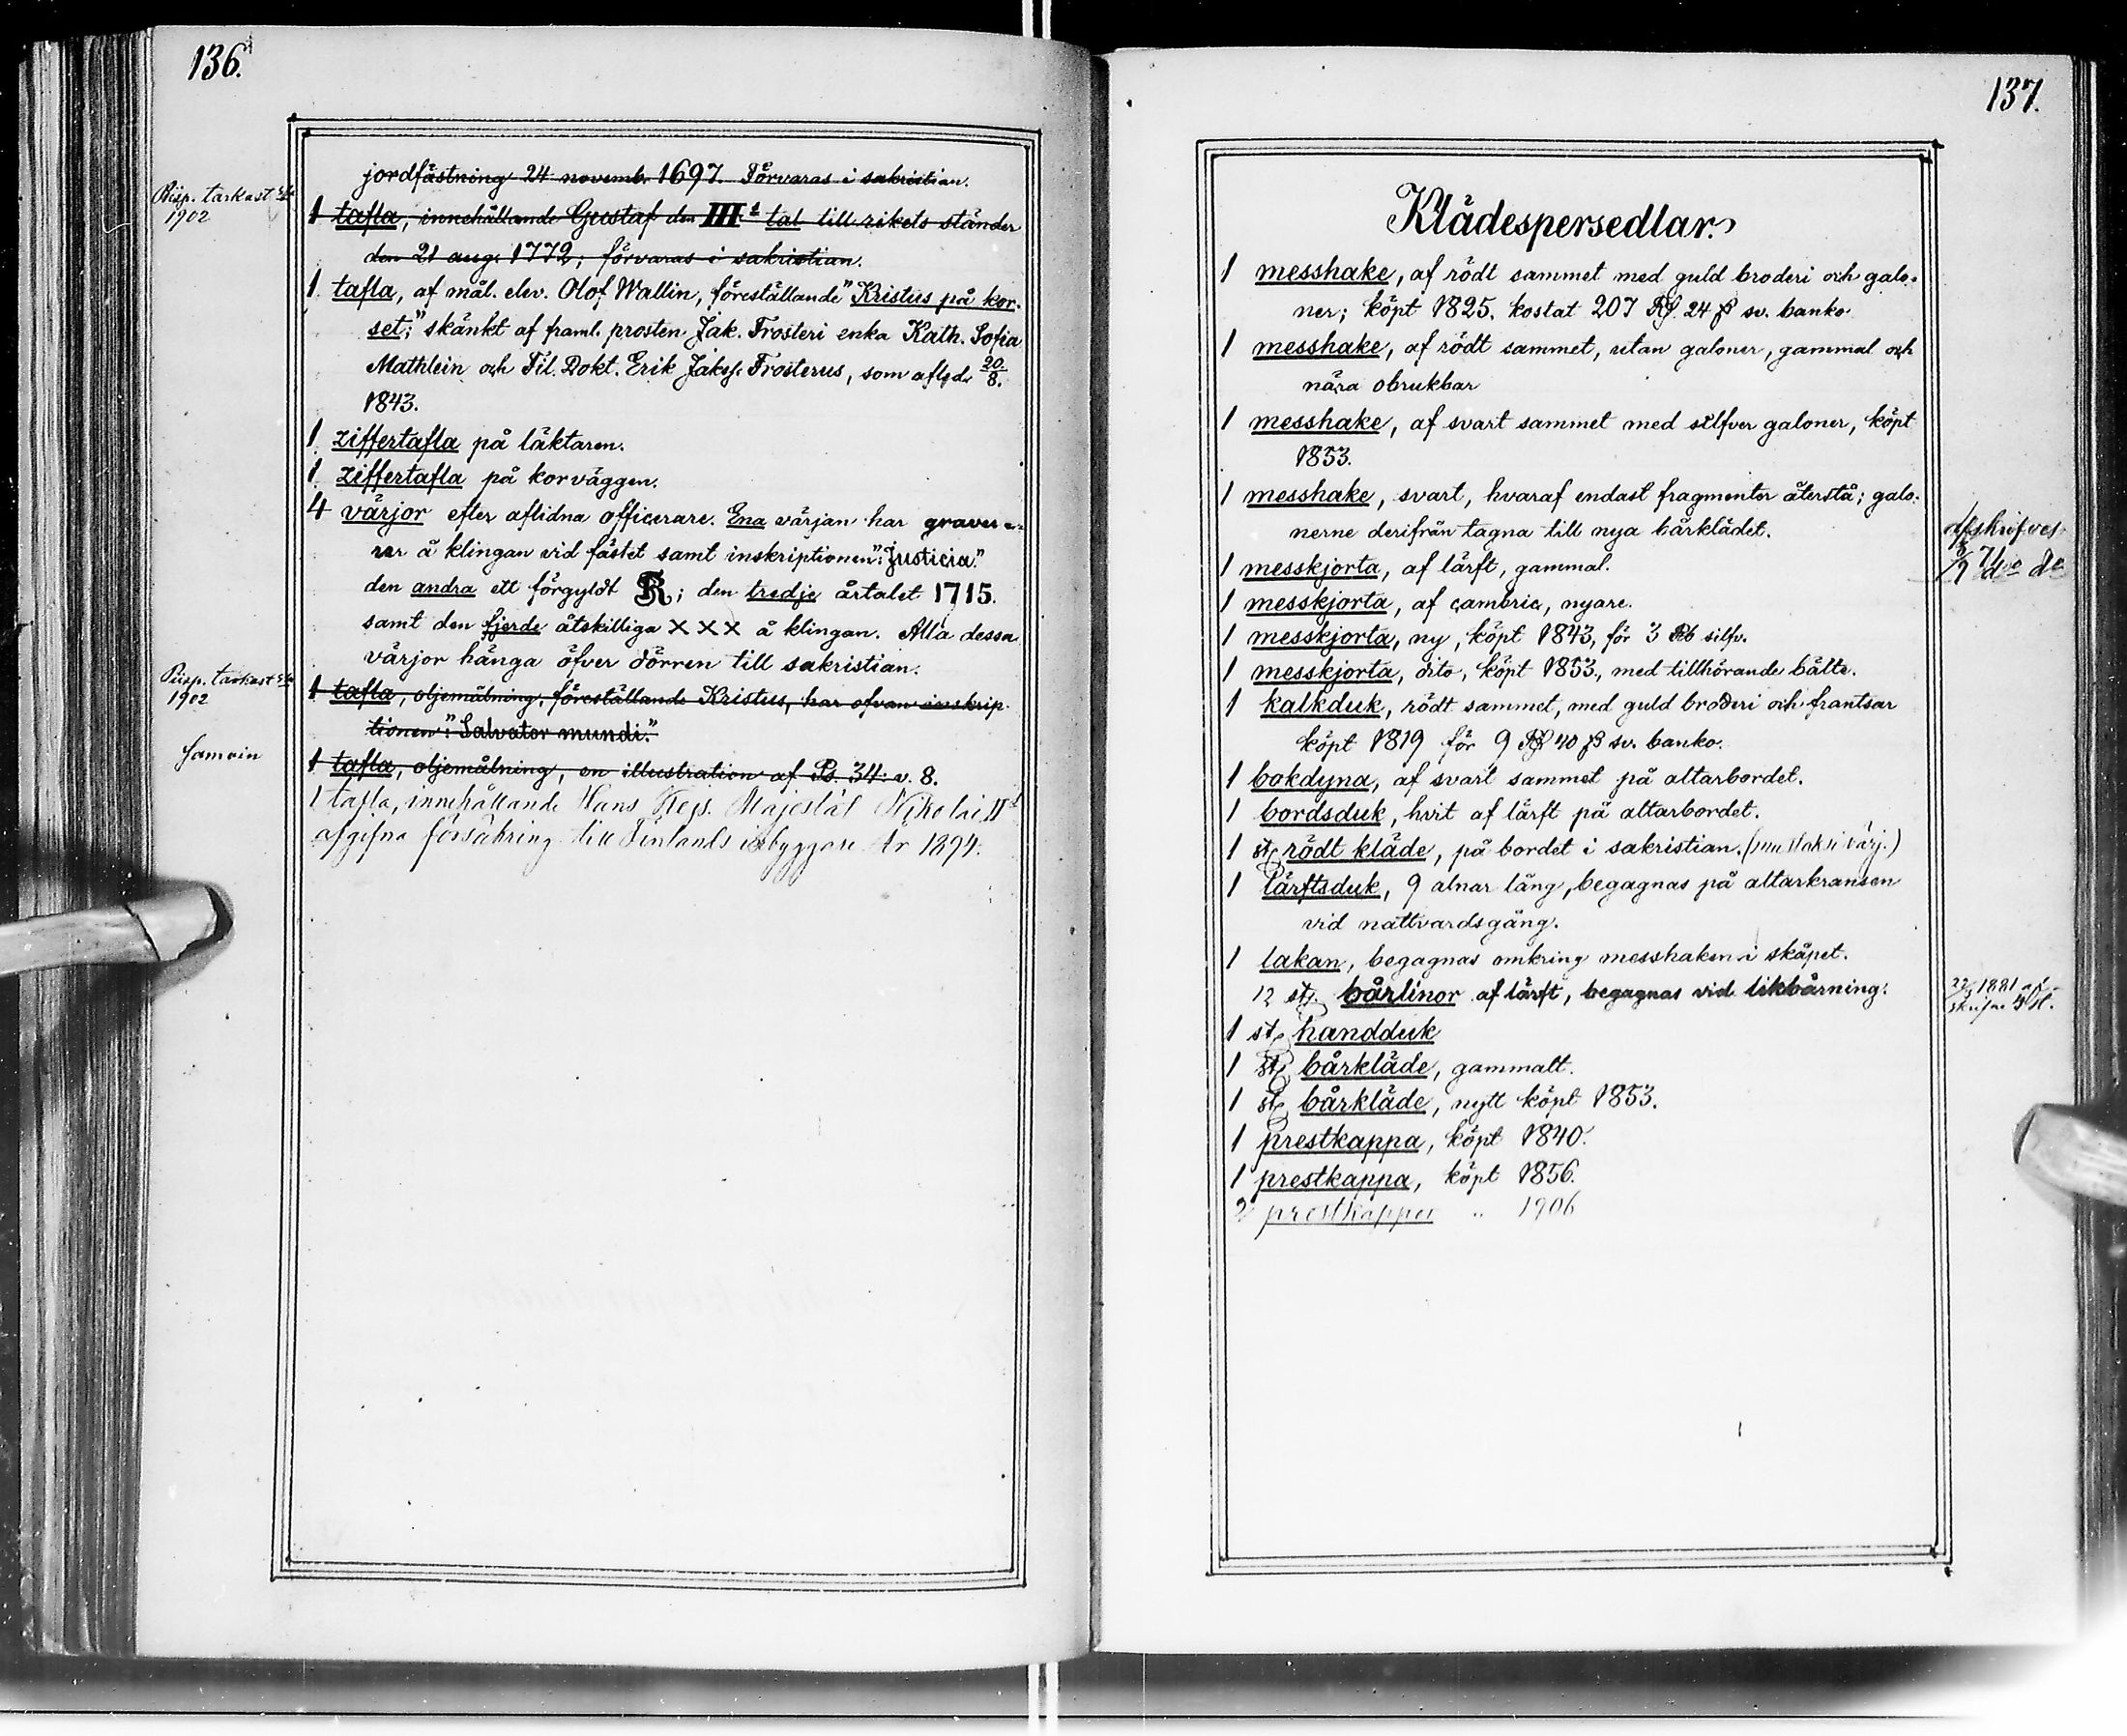 136.
jordfästning 24 novemb. 1697. Förvaras i sakristian.
Piisp. tarkast.
1902
1 tafla, innehållande Gustaf den III tal till rikets ständer
den 21 aug. 1772; förvaras i sakristian.
1 tafla, af mål. elev. Olof Wallin, föreställande "Kristus på kor-
set;" skänkt af framl. prosten Jak. Frosteri enka Kath. Sofia
Mathlein och Fil. Dokt. Erik Jakss. Frosterus, som afled 20/8.
1843.
1 ziffertafla på läktaren.
1 ziffertafla på korväggen.
4 värjor efter aflidna officerare. Ena värjan har graver-
rer å klingan vid fästet samt inskriptionen: "Justicia."
den andra ett förgyldt R; den tredje årtalet 1715.
samt den fjerde åtskilliga X X X å klingan. Alla dessa
värjor hänga öfver dörren till sakristian.
Piisp. tarkast.
1902
1 tafla, oljemålning, föreställande Kristus, har ofvan inskrip-
tionen: "Salvator mundi."
Samoin
1 tafla, oljemålning, en illustration af Ps. 34: v. 8.
1 tafla, innehållande Hans Kejs. Majestät Nikolai II
afgifna försäkring till Finlands inbyggare År 1894.
137.
Klädespersedlar.
1 messhake, af rödt sammet med guld broderi och galo-
ner; köpt 1825. kostat 207 Rd. 24 ß sv. banko
1 messhake, af rödt sammet, utan galoner, gammal och
nära obrukbar
1 messhake, af svart sammet med silfver galoner, köpt
1853.
1 messhake, svart, hvaraf endast fragmenter återstå; galo-
nerne derifrån tagna till nya bårklädet.
afskrifves
1 messkjorta, af lärft, gammal.
1 messkjorta, af cambric, nyare.
1 messkjorta, ny, köpt 1843, för 3 Rb silfv.
1 messkjorta, dito, köpt 1853., med tillhörande bälte.
1 kalkduk, rödt sammet, med guld broderi och frantsar
köpt 1819 för 9 Rd 40 ß sv. banko.
1 bokdyna, af svart sammet på altarbordet.
1 bordsduk, hvit af lärft på altarbordet.
1 st. rödt kläde, på bordet i sakristian.
1 lärftsduk, 9 alnar lång, begagnas på altarkransen
vid nattvardsgång.
1 lakan, begagnas omkring messhaken i skåpet.
12 st. bårlinor af lärft, begagnas vid likbårning.
1881 af-
skrifne st.
1 st. handduk
1 st. bårkläde, gammalt.
1 st. bårkläde, nytt köpt 1853.
1 prestkappa, köpt 1840.
1 prestkappa, köpt 1856.
2 prestkappor „ 1906